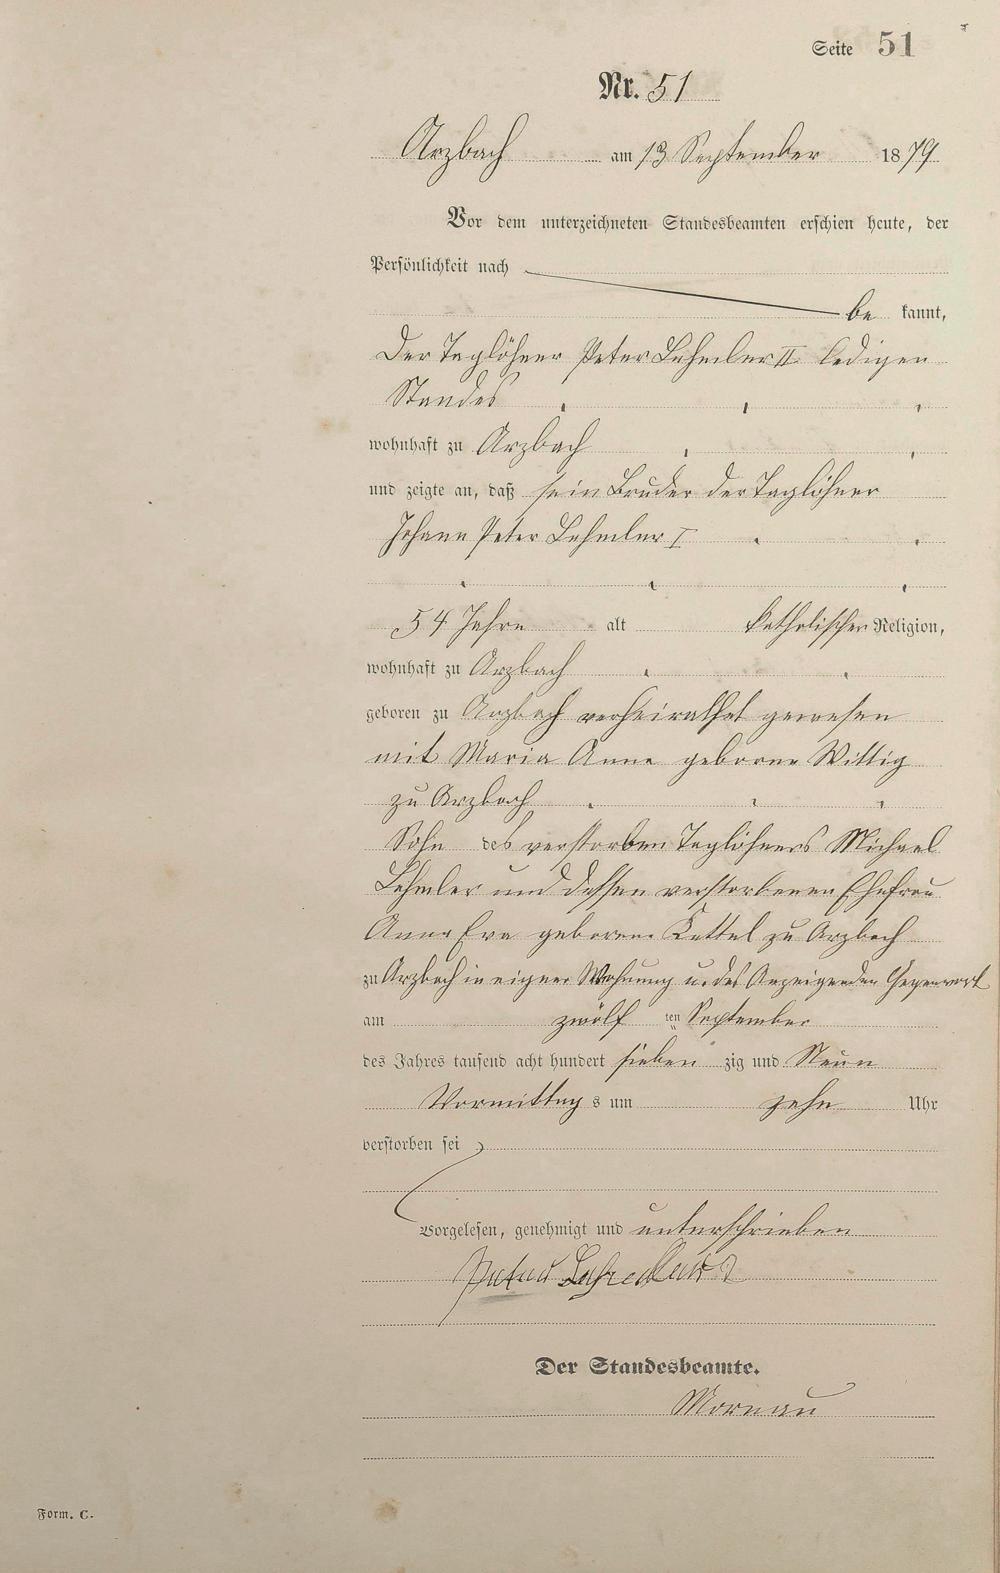 Seite 51
Nr. 51
Arzbach am 13 September 1879
Vor dem unterzeichneten Standesbeamten erschien heute, der
Persönlichkeit nach
be kannt,
Der Taglöhner Peter Lehmler II ledigen
Standes
wohnhaft zu Arzbach
und zeigte an, daß sein Bruder der Taglöhner
Johann Peter Lehmler I
54 Jahre alt katholischer Religion,
wohnhaft zu Arzbach
geboren zu Arzbach verheirathet gewesen
mit Maria Anna geborne Wittig
zu Arzbach
Sohn des verstorben Taglöhners Michael
Lehmler und dessen verstorbenen Ehefrau
Anna Eva geborene Kettel zu Arzbach
zu Arzbach in eigner Wohnung u. des Anzeigenden Gegenwart
am zwölf ten September
des Jahres tausend acht hundert sieben zig und Neun
Vormittag s um zehn Uhr
verstorben sei
Vorgelesen, genehmigt und unterschrieben
Peter
Der Standesbeamte.
Mornau
Form. C.